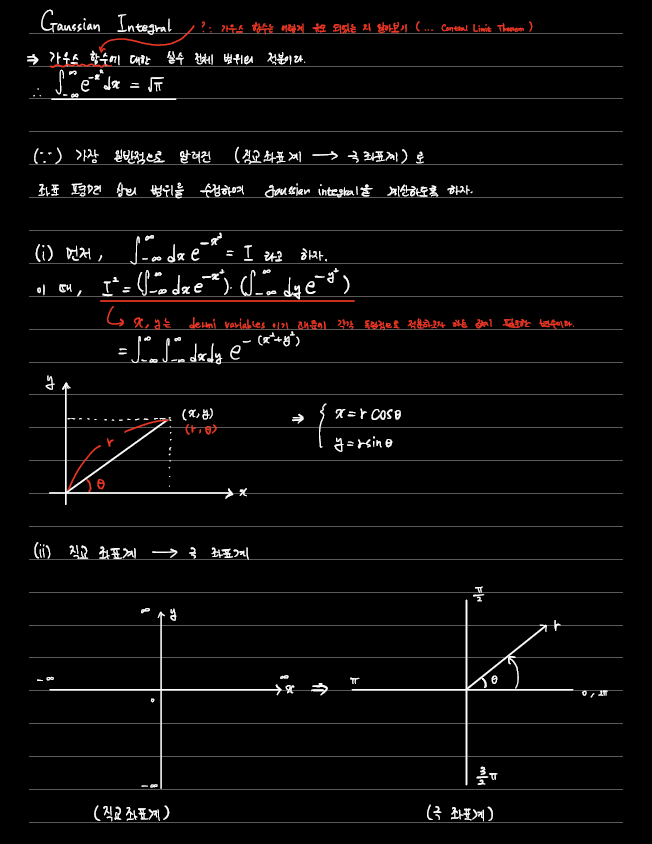 Gaussian Integral ?: 가우스 함수는 어떻게 유도 되었는 지 알아보기 (... Central Limit Theorem)
⇒ 가우스 함수에 대한 실수 전체 범위의 적분이다.
∴ ∫_{-∞}^{∞} e^{-x²} dx = √π
(∵) 가장 일반적으로 알려진 (직교좌표계 → 극 좌표계)로
좌표 평면 상의 범위를 수정하여 gaussian integral을 계산하도록 하자.
(i) 먼저, ∫_{-∞}^{∞} dx e^{-x²} = I 라고 하자.
이 때, I² = (∫_{-∞}^{∞} dx e^{-x²})·(∫_{-∞}^{∞} dy e^{-y²})
↳ x, y는 dummi variables 이기 때문에 각각 독립적으로
= ∫_{-∞}^{∞} ∫_{-∞}^{∞} dxdy e^{-(x²+y²)}
y
(x,y)
(r,θ)
r
θ
x
⇒ { x = r cosθ
y = r sinθ
(ii) 직교 좌표계 → 극 좌표계
∞ y
-∞ ∞ x
0
-∞
(직교좌표계)
⇒
π/2
r
π θ 0, 2π
3/2 π
(극 좌표계)